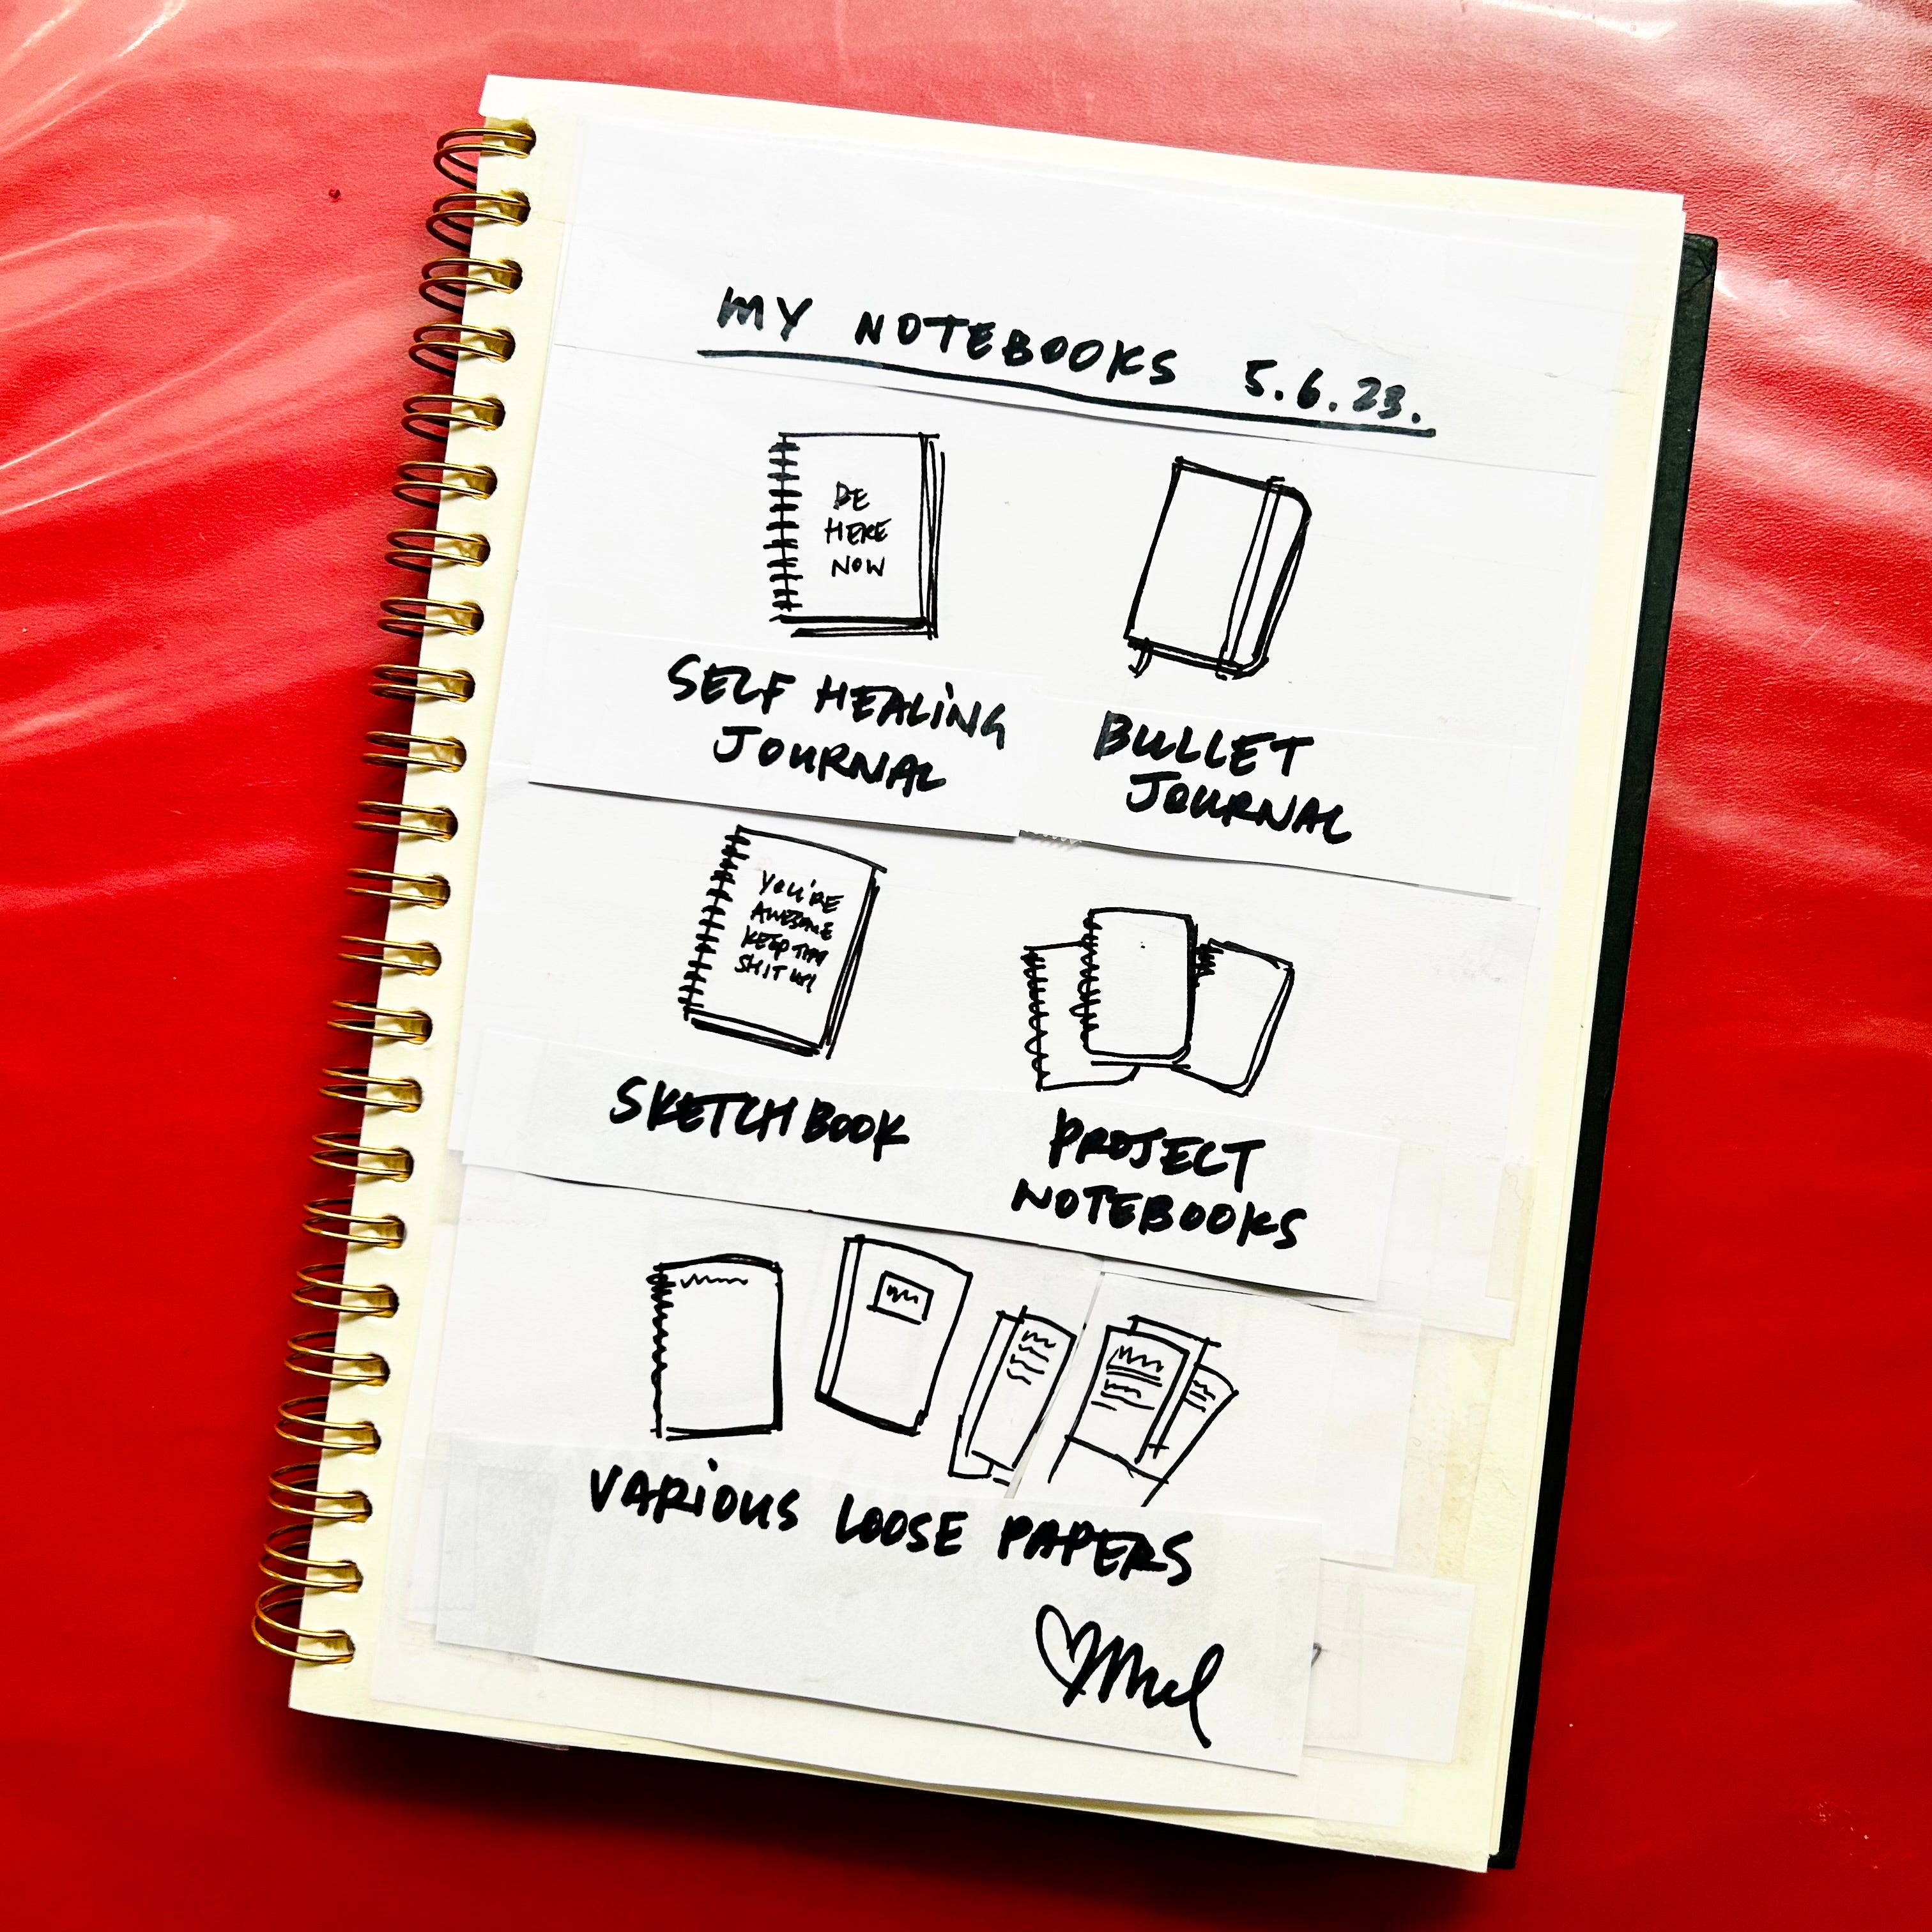 MY NOTEBOOKS 5.6.23.
BE
HERE
NOW
SELF HEALING
JOURNAL
BULLET
JOURNAL
YOU'RE
AWESOME
KEEP THAT
SHIT UP!
SKETCHBOOK
PROJECT
NOTEBOOKS
VARIOUS LOOSE PAPERS
Mel